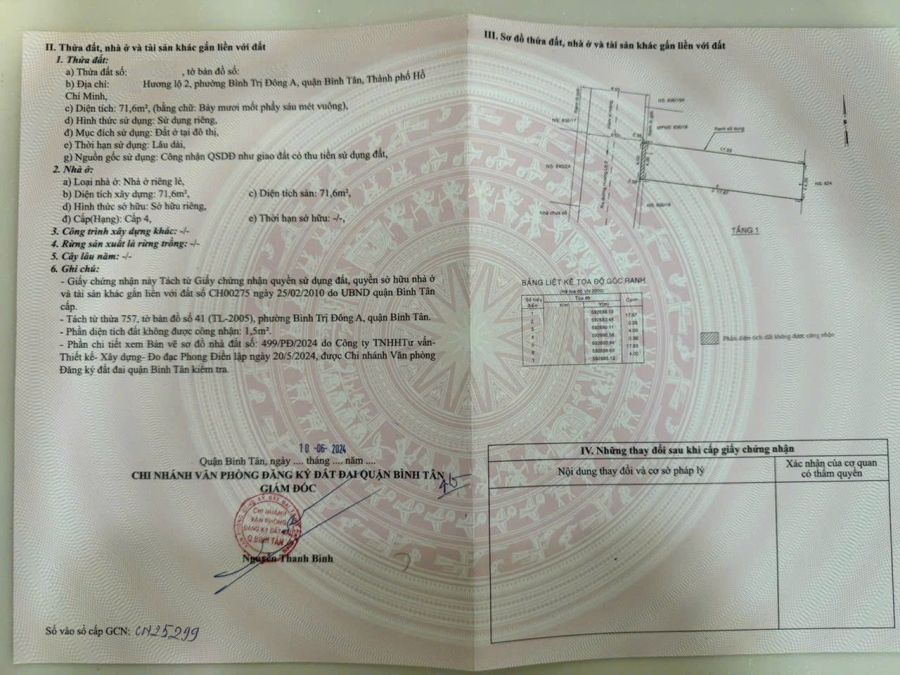 II. Thửa đất, nhà ở và tài sản khác gắn liền với đất
1. Thửa đất:
a) Thửa đất số: , tờ bản đồ số:
b) Địa chỉ: Hương lộ 2, phường Bình Trị Đông A, quận Bình Tân, Thành phố Hồ
Chí Minh,
c) Diện tích: 71,6m², (bằng chữ: Bảy mươi mốt phẩy sáu mét vuông),
d) Hình thức sử dụng: Sử dụng riêng,
đ) Mục đích sử dụng: Đất ở tại đô thị,
e) Thời hạn sử dụng: Lâu dài,
g) Nguồn gốc sử dụng: Công nhận QSDĐ như giao đất có thu tiền sử dụng đất,
2. Nhà ở:
a) Loại nhà ở: Nhà ở riêng lẻ,
b) Diện tích xây dựng: 71,6m², c) Diện tích sàn: 71,6m²,
d) Hình thức sở hữu: Sở hữu riêng,
đ) Cấp(Hạng): Cấp 4, e) Thời hạn sở hữu: -/-,
3. Công trình xây dựng khác: -/-
4. Rừng sản xuất là rừng trồng: -/-
5. Cây lâu năm: -/-
6. Ghi chú:
- Giấy chứng nhận này Tách từ Giấy chứng nhận quyền sử dụng đất, quyền sở hữu nhà ở
và tài sản khác gắn liền với đất số CH00275 ngày 25/02/2010 do UBND quận Bình Tân
cấp.
- Tách từ thửa 757, tờ bản đồ số 41 (TL-2005), phường Bình Trị Đông A, quận Bình Tân.
- Phần diện tích đất không được công nhận: 1,5m².
- Phần chi tiết xem Bản vẽ sơ đồ nhà đất số: 499/PĐ/2024 do Công ty TNHHTư vấn-
Thiết kế- Xây dựng- Đo đạc Phong Điền lập ngày 20/5/2024, được Chi nhánh Văn phòng
Đăng ký đất đai quận Bình Tân kiểm tra.
10-06-2024
Quận Bình Tân, ngày .... tháng ... năm ....
CHI NHÁNH VĂN PHÒNG ĐĂNG KÝ ĐẤT ĐAI QUẬN BÌNH TÂN
GIÁM ĐỐC
CHI NHÁNH
VĂN PHÒNG
ĐĂNG KÝ ĐẤT ĐAI
Q.BÌNH TÂN
Nguyễn Thanh Bình
Số vào sổ cấp GCN: CH25299
III. Sơ đồ thửa đất, nhà ở và tài sản khác gắn liền với đất
Ranh sử dụng
17.83
17.67
4.00
NS: 824
Nhà chưa số
TẦNG 1
BẢNG LIỆT KÊ TỌA ĐỘ GÓC RANH
Số hiệu điểm
Tọa độ
X(m) Y(m) Cạnh
Phần diện tích đất không được công nhận
IV. Những thay đổi sau khi cấp giấy chứng nhận
Nội dung thay đổi và cơ sở pháp lý
Xác nhận của cơ quan
có thẩm quyền